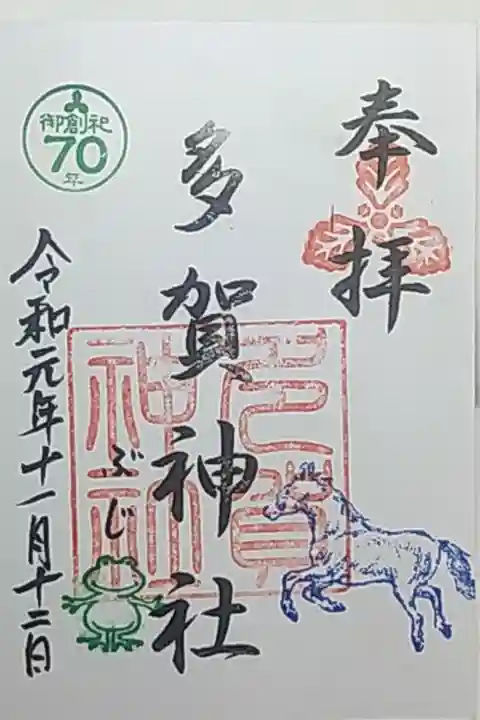 奉拝
多賀神社
多賀神社
ぶじ
御創祀
70
年
令和元年十一月十二日